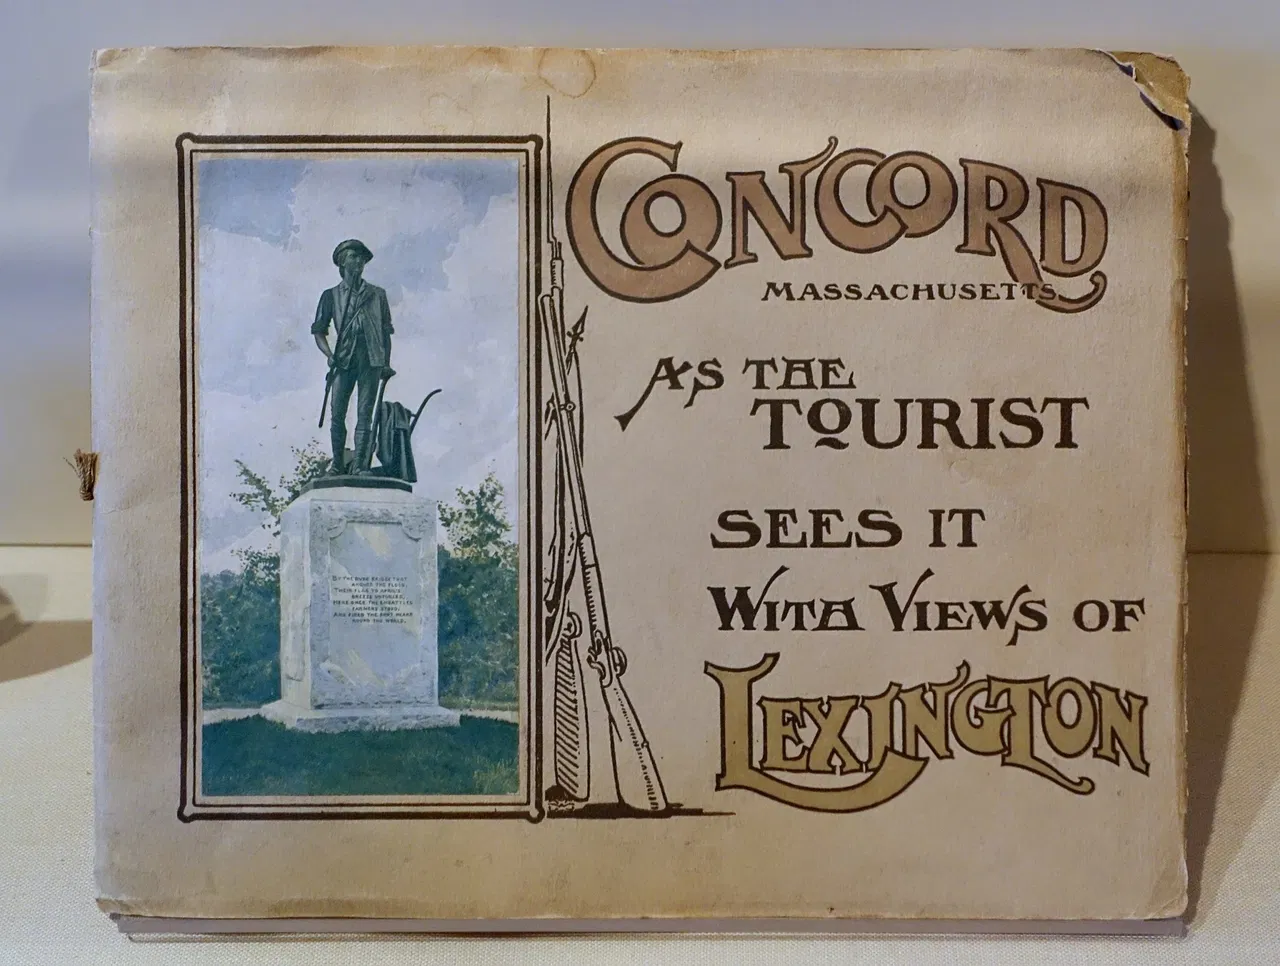 CONCORD
MASSACHUSETTS
AS THE
TOURIST
SEES IT
WITH VIEWS OF
LEXINGTON
BY THE RUDE BRIDGE THAT
ARCHED THE FLOOD,
THEIR FLAG TO APRIL'S
BREEZE UNFURLED,
HERE ONCE THE EMBATTLED
FARMERS STOOD,
AND FIRED THE SHOT HEARD
ROUND THE WORLD.